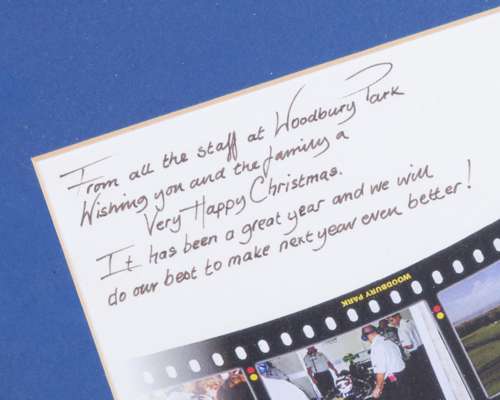 From all the staff at Woodbury Park
Wishing you and the family a
Very Happy Christmas.
It has been a great year and we will
do our best to make next year even better!
WOODBURY PARK